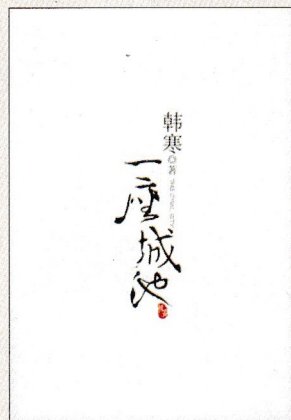 韩寒◎著
一座城池